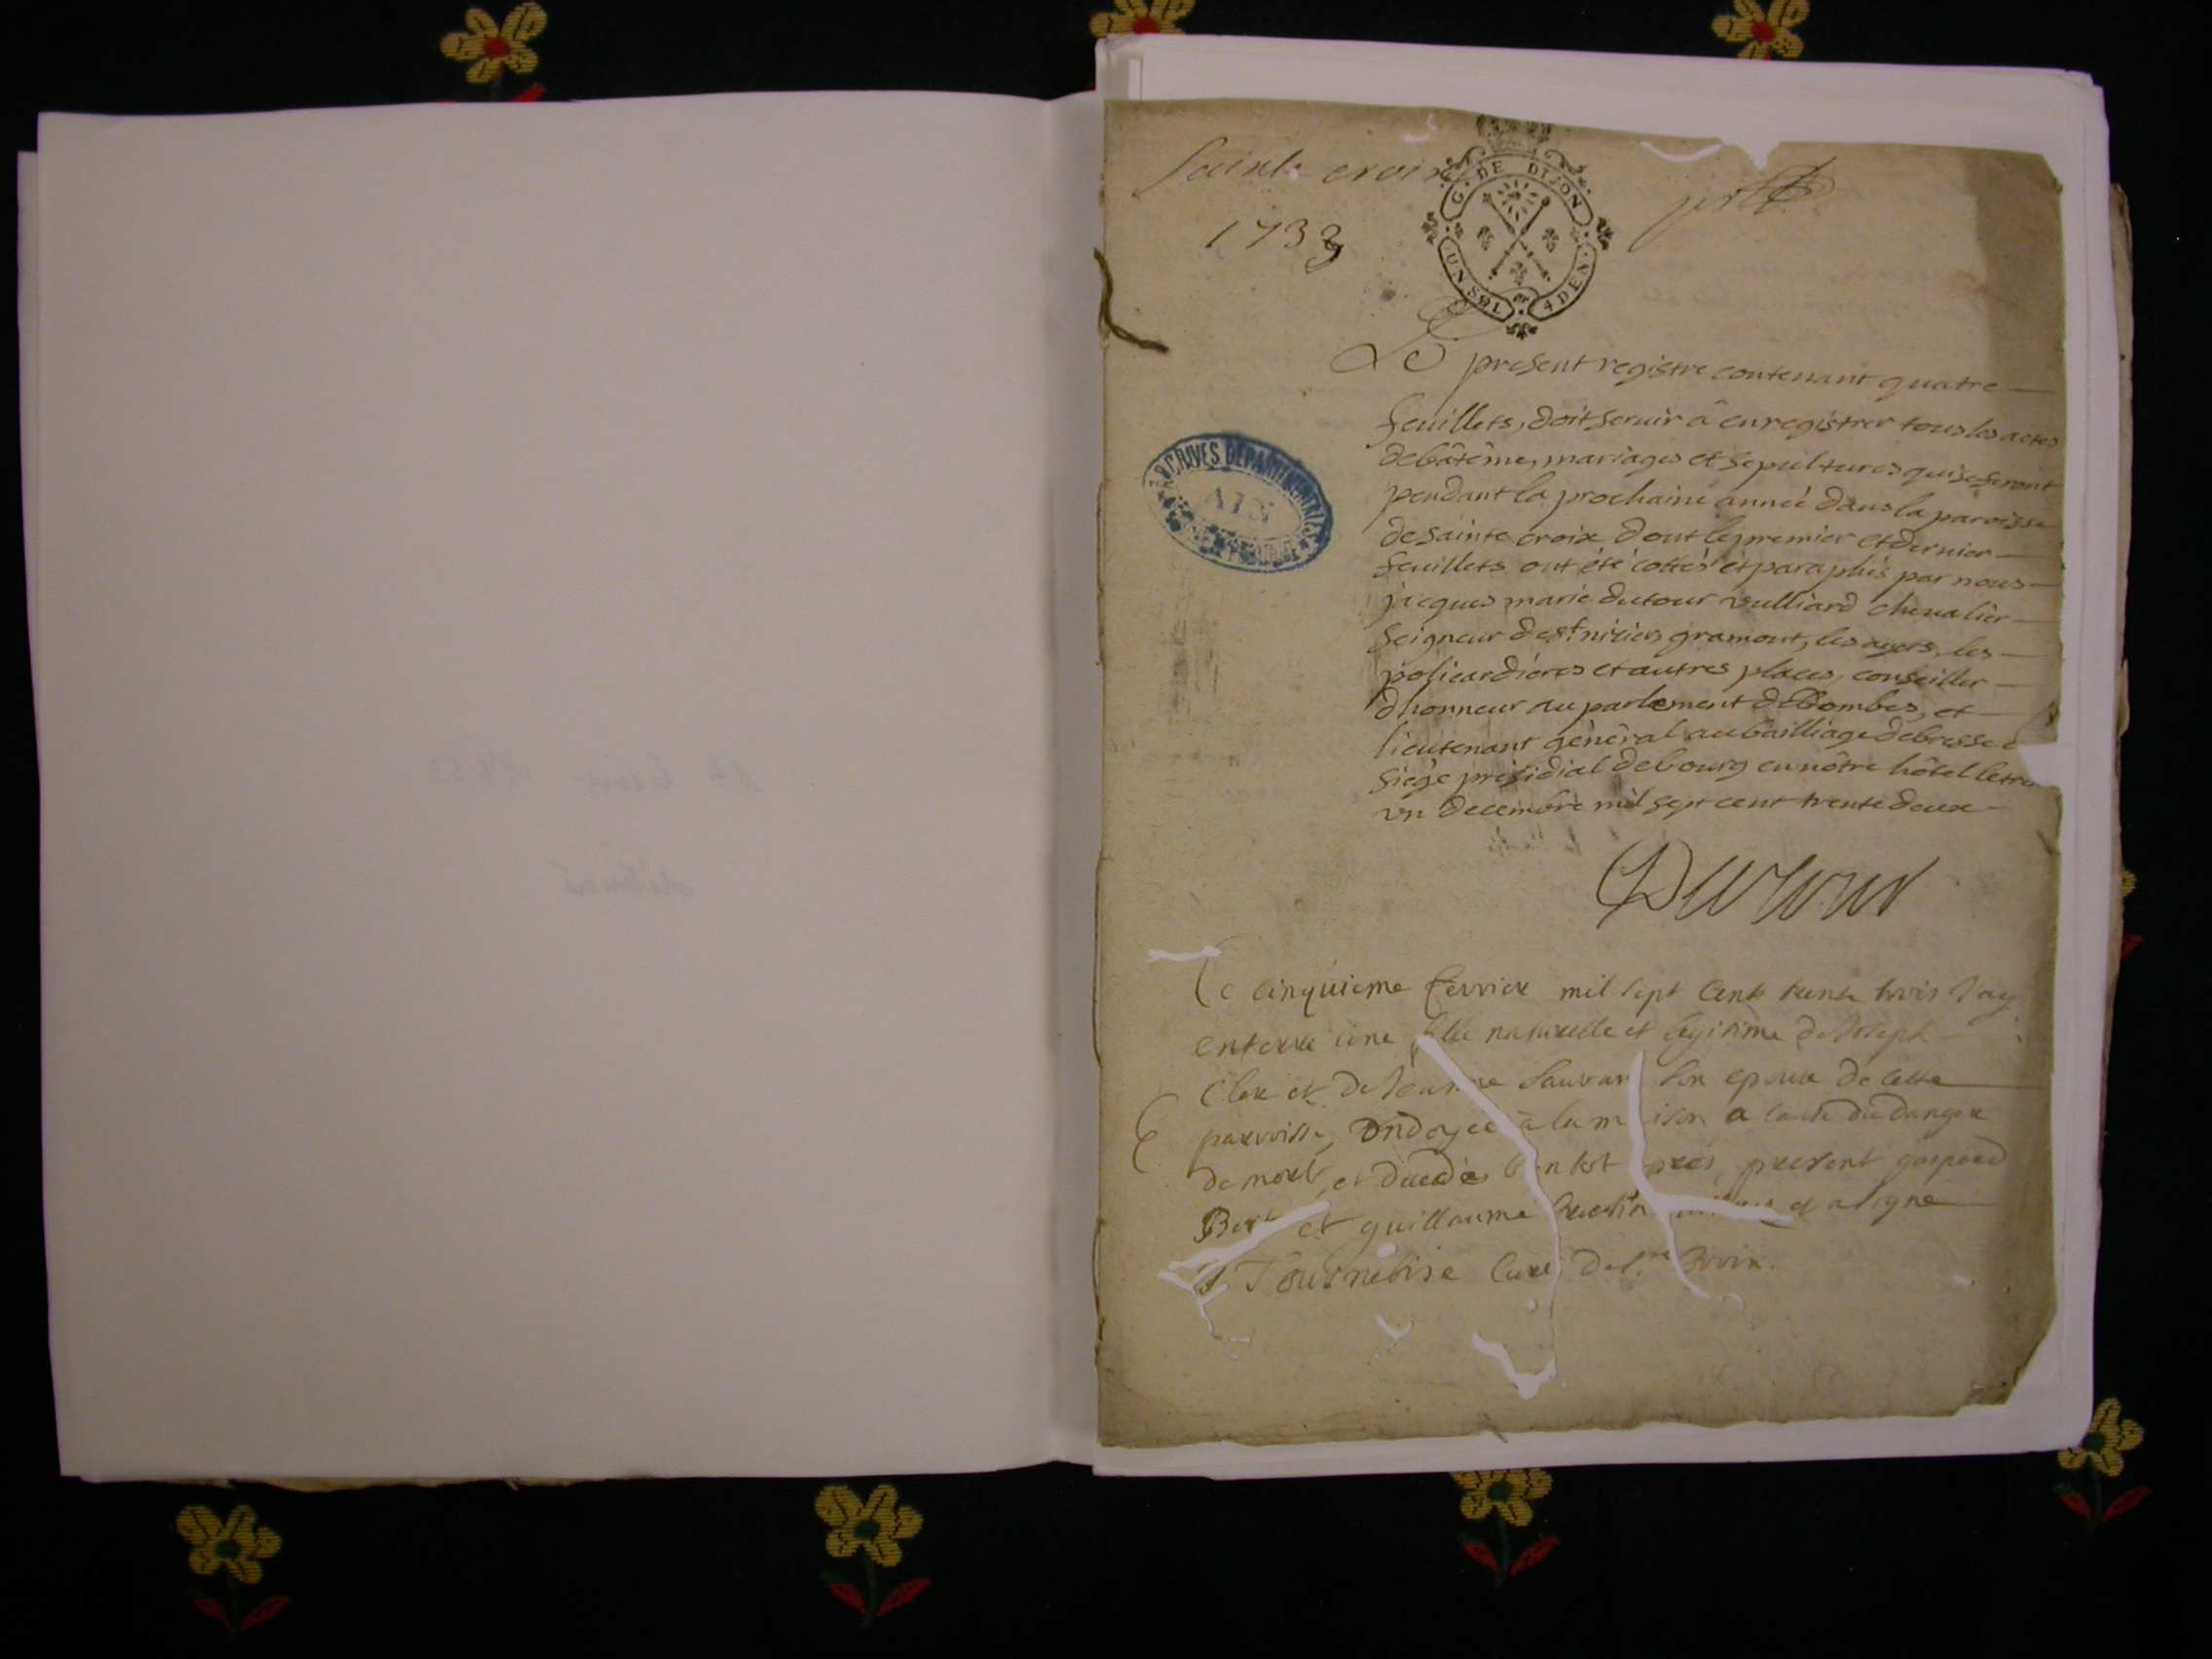 Sainte croix
1733
G. DE DIJON
UN SOL 4 DEN.
ARCHIVES DEPARTEMENTALES
AIN
Le present registre contenant quatre
feuillets, doit servir â enregistrer tous les actes
de bâtême, mariages et sepultures qui se feront
pendant la prochaine anneé dans la paroisse
de sainte croix dont le premier et dernier
feuillets ont été cottés et paraphés par nous
jacques marie dutour vulliard chevalier
seigneur de st nizier, gramont, les
polieardieres et autres places, conseiller
d honneur au parlement de Dombes, et
lieutenant géneral au bailliage de bresse e
siége présidial de bourg en nôtre hôtel le tren
un decembre mil sept cent trente deux
Dutour
Le cinquieme fevrier mil sept cent trente trois jay
enterre une fille naturelle et legitime de Joseph
Clere et de Jeanne Sauvan son epouse de cette
parroisse, ondoyee à la m ison a cause du danger
de mort, et decedée b n tot pres, present gaspard
et guillaume signé
Tournebise Curé de Ste Croix